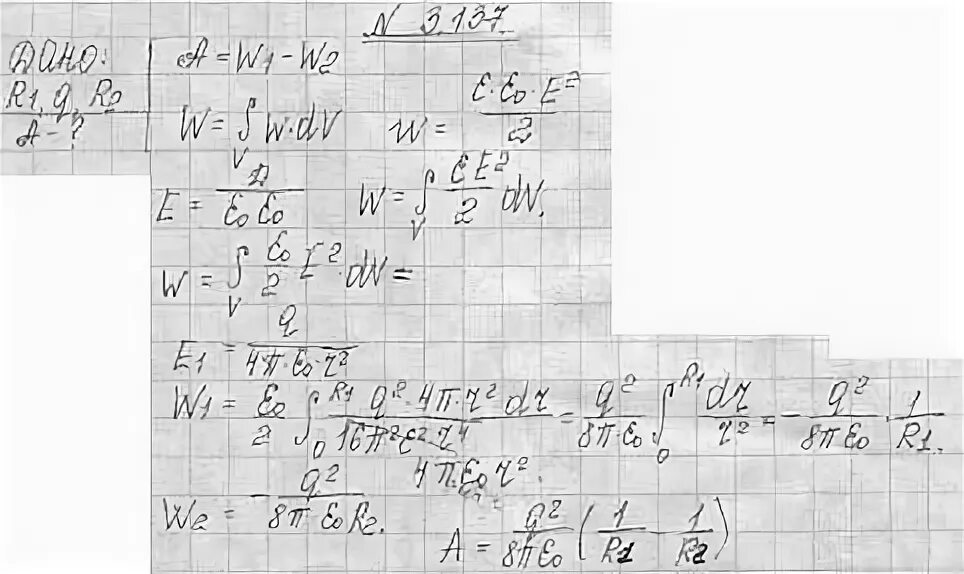 N 3.137
Дано:
R1, q, R2
A - ?
A = W1 - W2
W = ∫_V w·dV    w = (ε·ε0·E²)/2
E = D/(ε0 ε0)    W = ∫_V (εE²)/2 dV.
W = ∫_V ε0/2 E² · dV =
E1 = q/(4π·ε0·r²)
W1 = ε0/2 ∫_0^R1 (q²·4π·r² dr)/(16π²ε²r⁴) = q²/(8π·ε0) ∫_0^R1 dr/r² = - q²/(8πε0) · 1/R1.
4π·ε0 r².
W2 = - q²/(8π ε0 R2.
A = q²/(8πε0) (1/R1 - 1/R2)